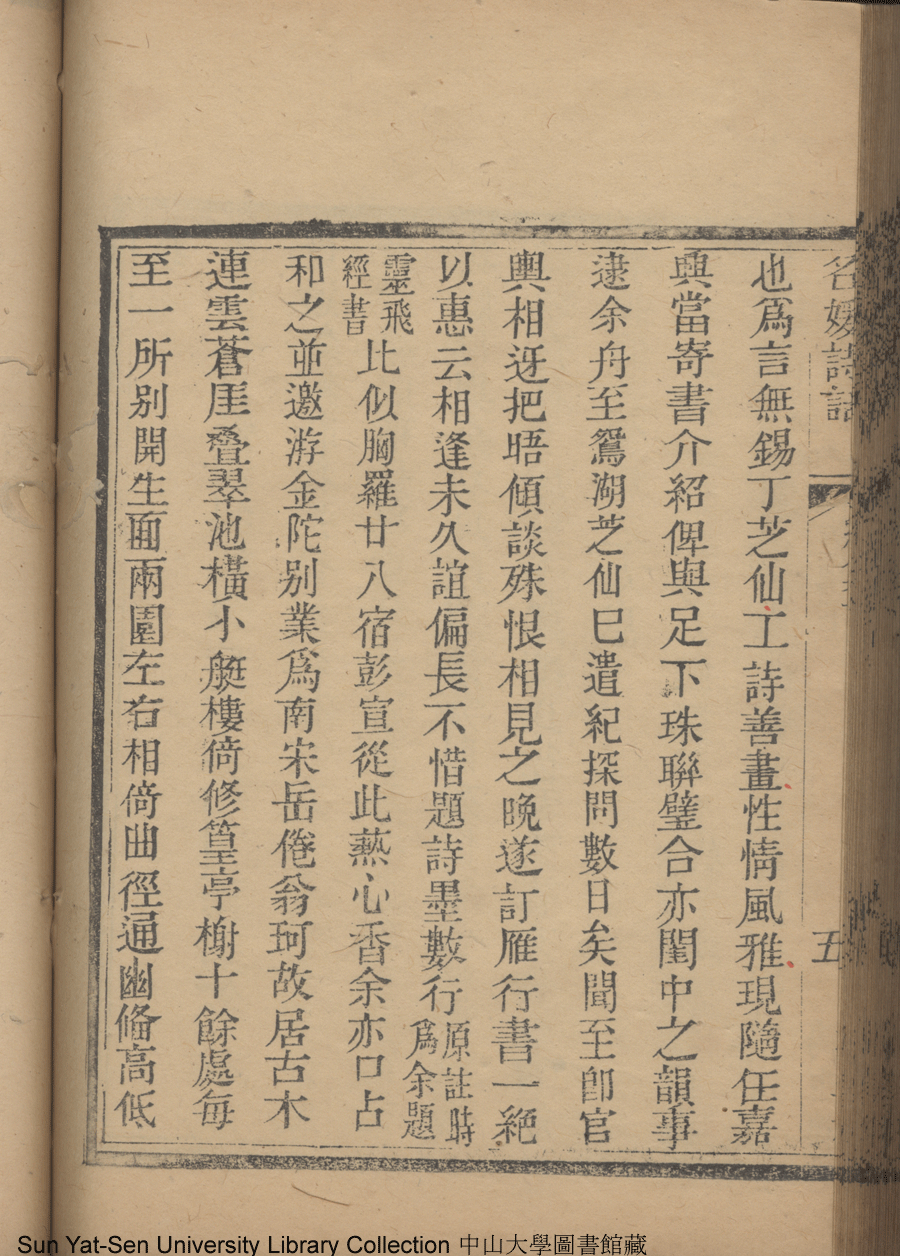 名媛詩話
五
也為言無錫丁芝仙工詩善畫性情風雅現隨任嘉
興當寄書介紹俾與足下珠聯璧合亦閨中之韻事
逮余舟至鴛湖芝仙巳遣紀探問數日矣聞至卽官
輿相迓把晤傾談殊恨相見之晚遂訂雁行書一絕
以惠云相逢未久誼偏長不惜題詩墨數行原註時為余題
靈飛經書比似胸羅廿八宿彭宣從此爇心香余亦口占
和之並邀游金陀别業為南宋岳倦翁珂故居古木
連雲蒼厓疊翠池橫小艇樓倚修篁亭榭十餘處每
至一所别開生面兩園左右相倚曲徑通幽脩高低
Sun Yat-Sen University Library Collection 中山大學圖書館藏